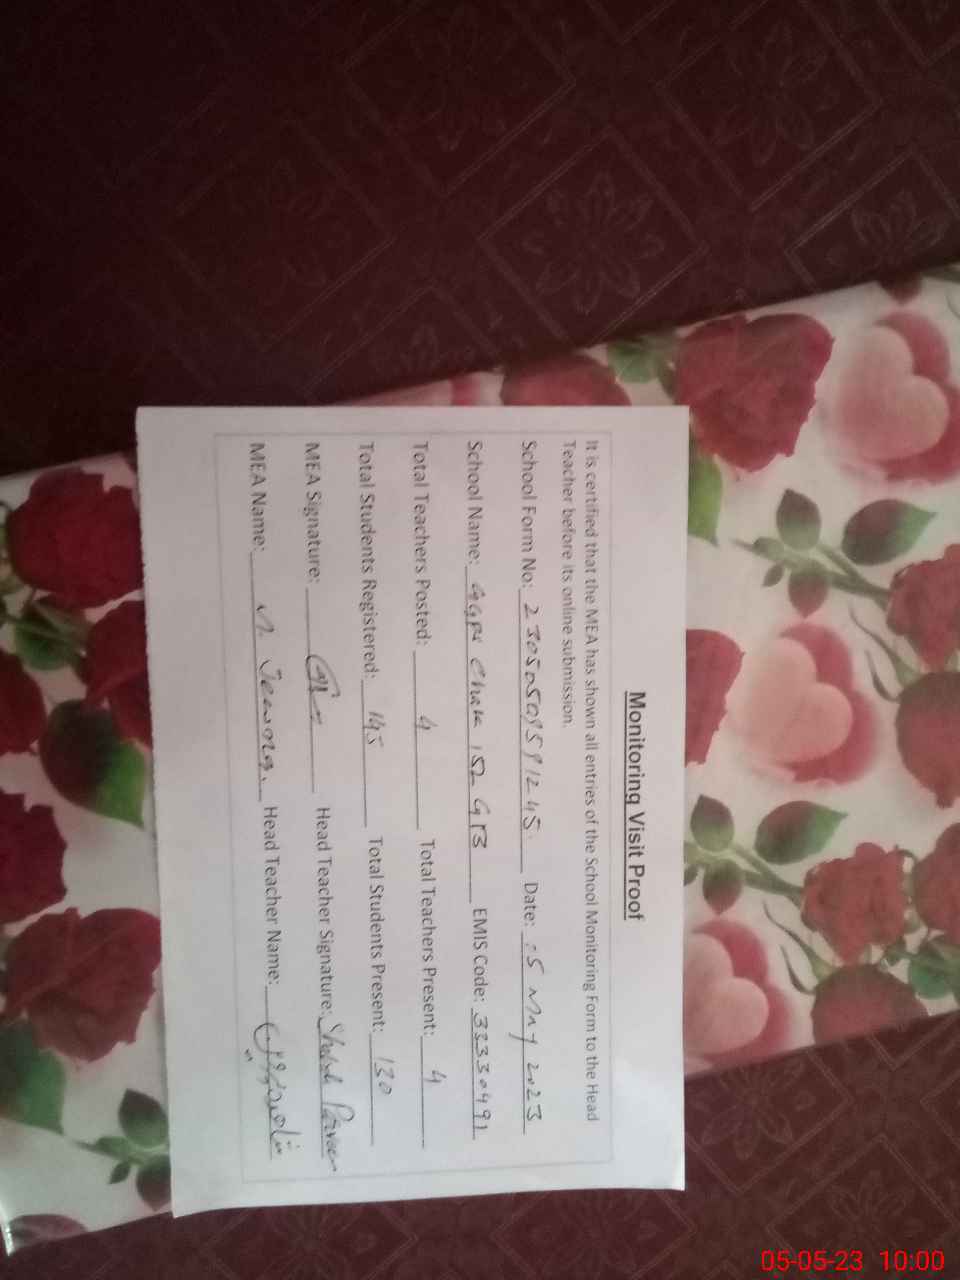 Monitoring Visit Proof
It is certified that the MEA has shown all entries of the School Monitoring Form to the Head
Teacher before its online submission.
School Form No: Date: 05 May 2023
School Name: GGPS Chak 152 GB EMIS Code: 33330491
Total Teachers Posted: 4 Total Teachers Present: 4
Total Students Registered: 145 Total Students Present: 130
MEA Signature: Head Teacher Signature: Parveen
MEA Name: Head Teacher Name:
05-05-23 10:00